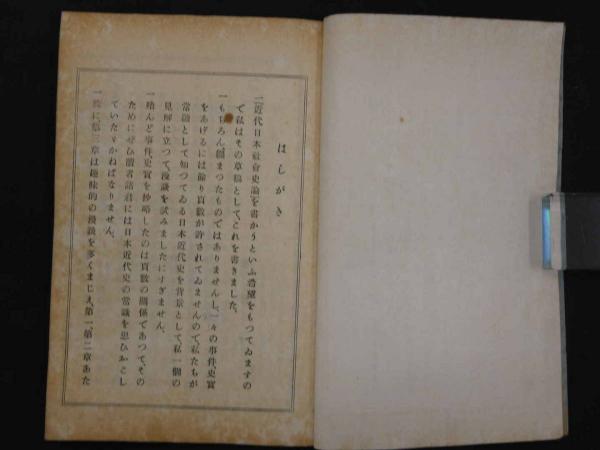 はしがき
一、近代日本社會史論を書かうといふ希望をもつてゐますの
で私はその草稿として、これを書きました。
一、もちろん纒まつたものではありませんし、一々の事件、史實
をあげるには餘り頁數が許されてゐませんので、私たちが
常識として知つてゐる日本近代史を背景として、私一個の
見解に立つて、漫談を試みましたにすぎません。
一、殆んど事件、史實を抄略したのは頁數の關係であつて、その
ためにぜひ讀者諸君には日本近代史の常識を思ひおこし
ていたゞかねばなりません。
一、第三章は趣味的の漫談を多くまじえ、第一、第二章あた